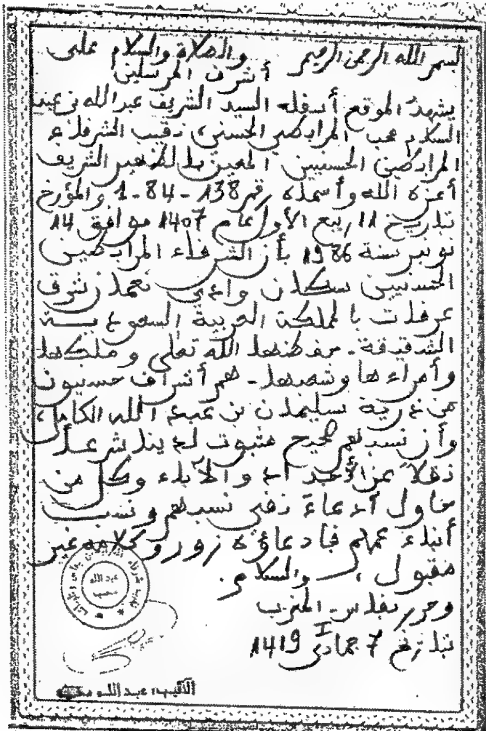 بسم الله الرحمن الرحيم والصلاة والسلام على
أشرف المرسلين
يشهد الموقع أسفله السيد الشريف عبد الله بن عبد
السلام المراكضي الحسني، نقيب الشرفاء
المراكضين الحسنيين المعين بالظهير الشريف
أعزه الله وأسماه رقم 138-84-1 والمؤرخ
بتاريخ 11 ربيع الأول عام 1407 موافق 14
نونبر سنة 1986 بأن الشرفاء المراكضين
الحسنيين سكان وادي نعمان شرق
عرفات بالمملكة العربية السعودية
الشقيقة. حفظها الله تعالى وملكها
وأمراءها وشعبها. هم أشراف حسنيون
من ذرية سليمان بن عبد الله الكامل،
وأن نسبهم صحيح مثبوت لدينا شرعا
نقلا عن الأجداد والآباء وكل من
حاول ادعاء نفي نسبهم ونسب
أبناء عمهم فادعاؤه زور وكلامه غير
مقبول، والسلام.
وحرر بفاس - المغرب
بتاريخ 7 جمادى I 1419
النقيب: عبد الله